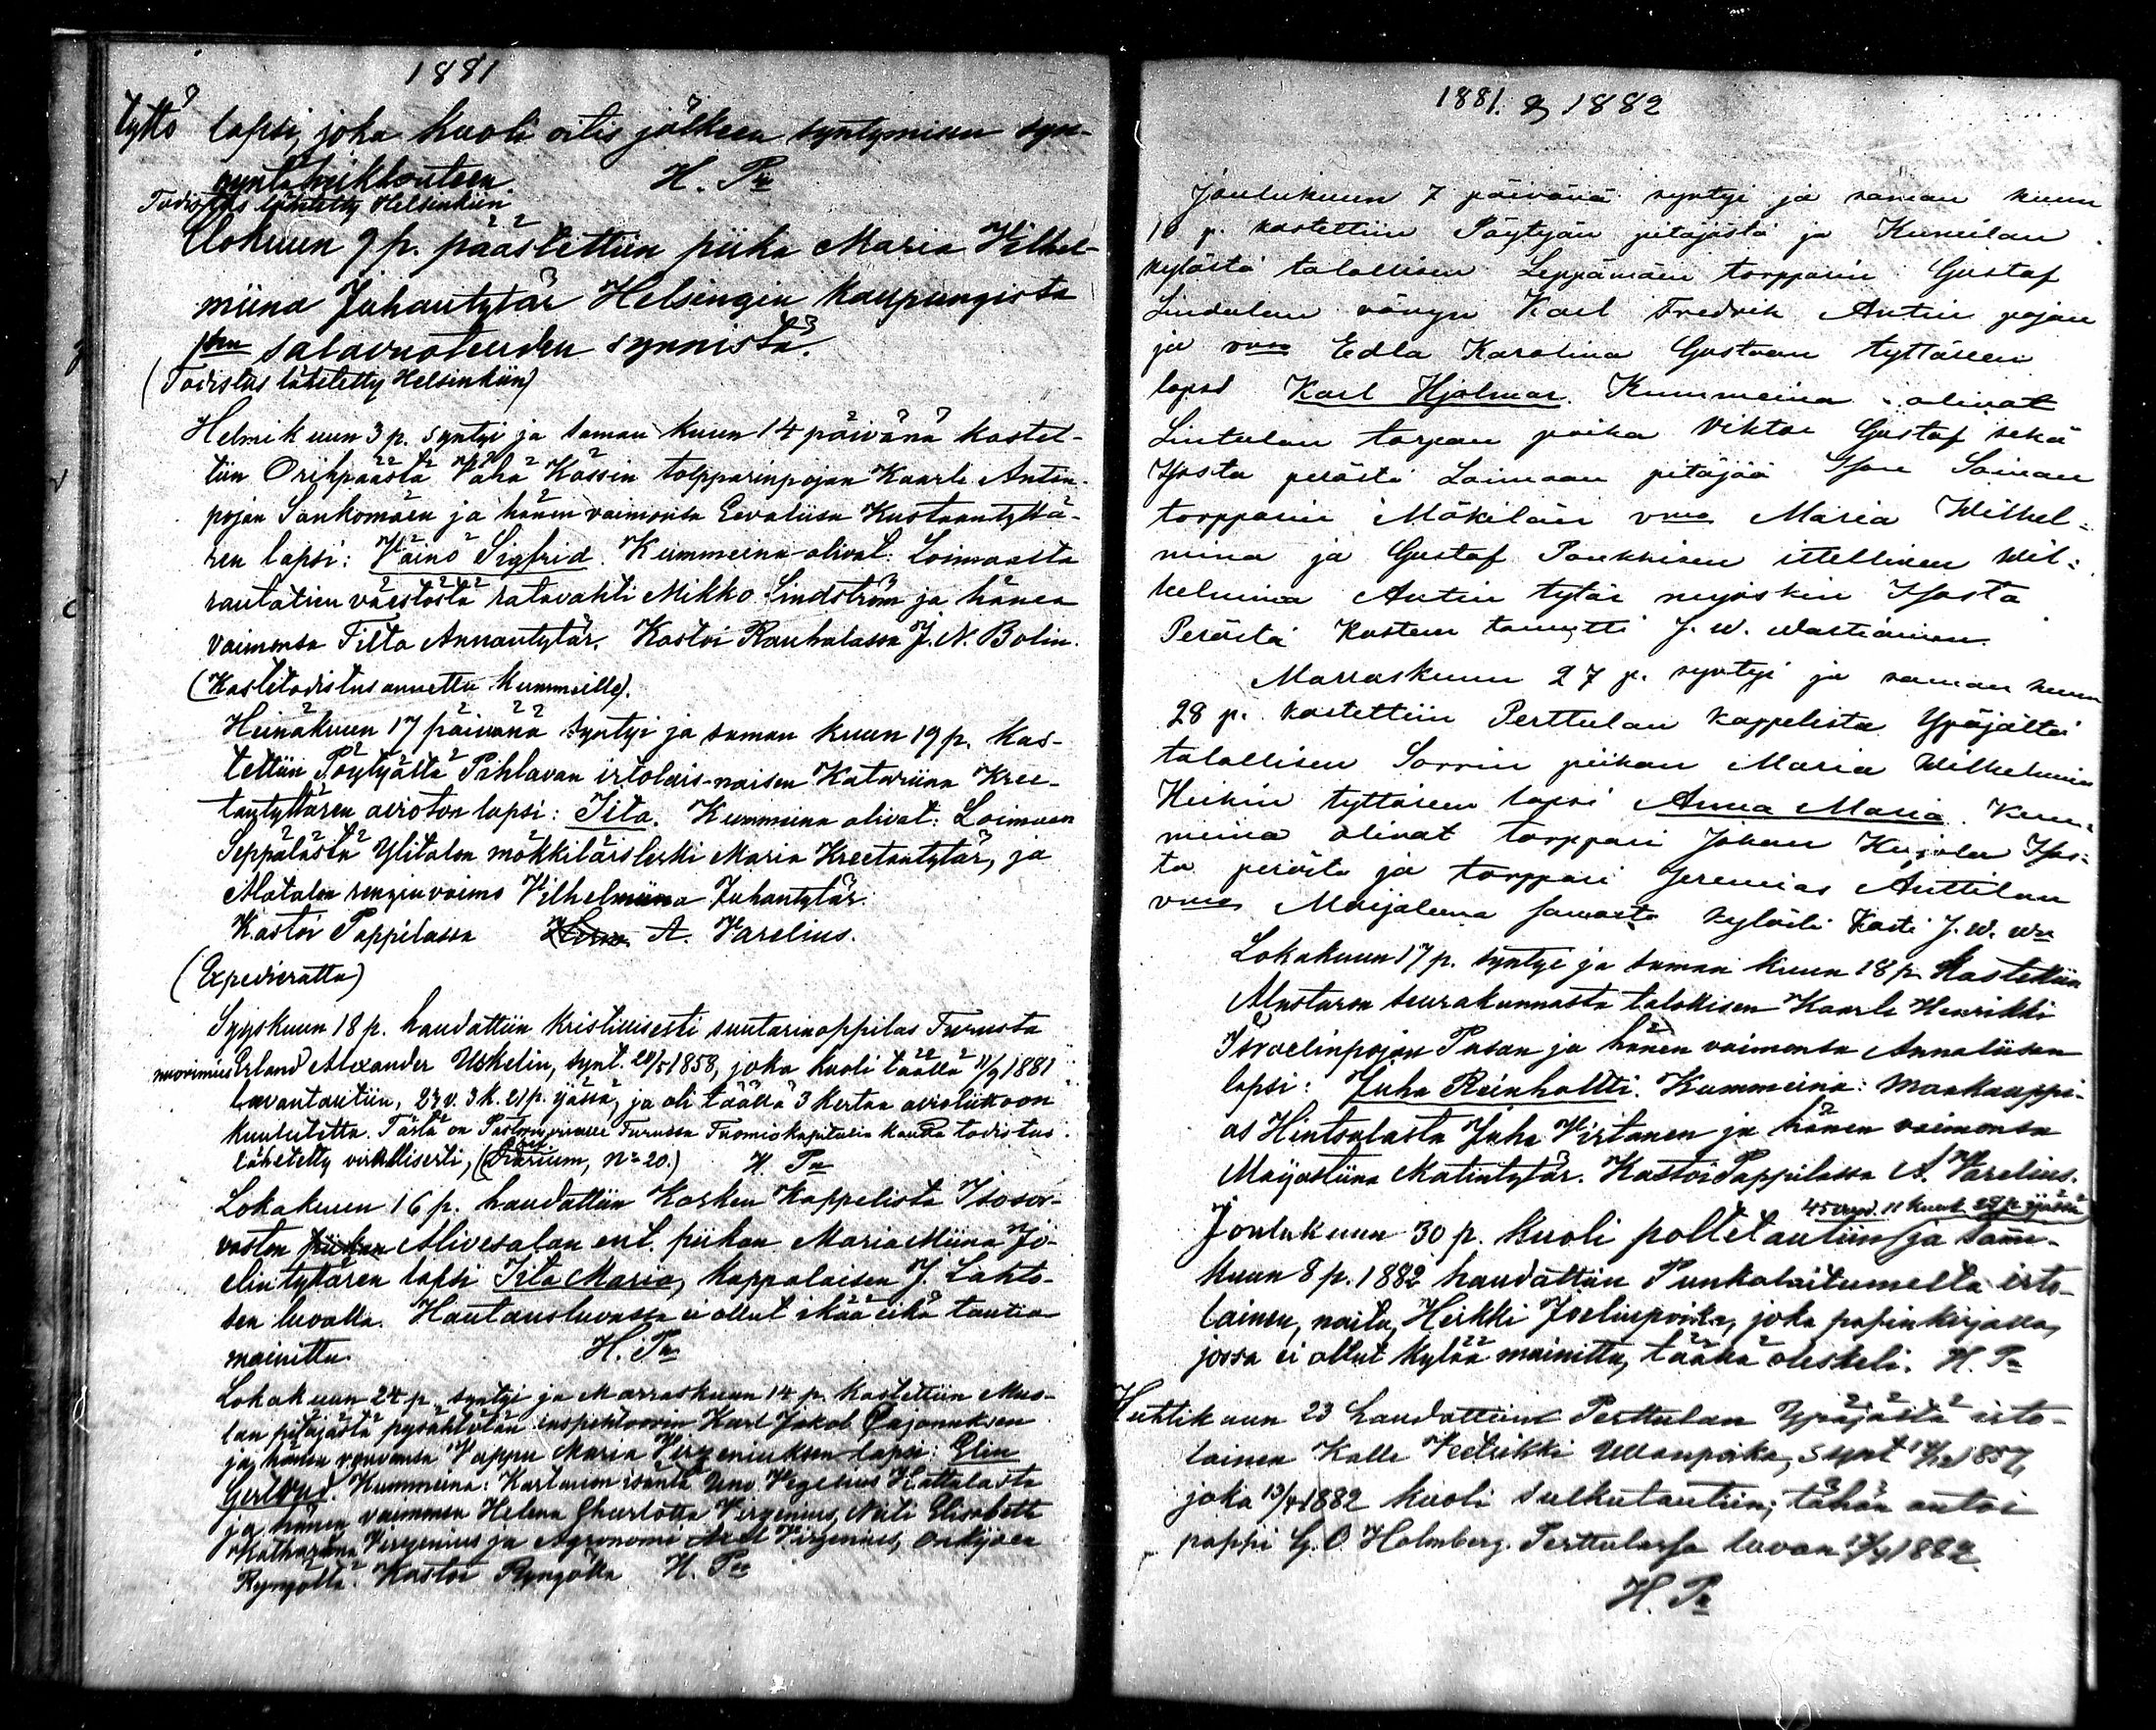 1881
tyttö lapsi, joka kuoli oitis jälkeen syntymisen syn-
nyntäheikkouteen. H. Pn
Todistus lähetetty Helsinkiin
Elokuun 9 p. päästettiin piika Maria Vilhel-
miina Juhantytär Helsingin kaupungista
salavuoteuden synnistä.
(Todistus lähetetty Helsinkiin)
Helmikuun 3 p. syntyi ja saman kuun 14 päivänä kastet-
tiin Orihpäästä Vähä Kössin torpparinpojan Kaarle Antin-
pojan Sankomäen ja hänen vaimonsa Eevaliisa Kustaantyttä-
ren lapsi: Väinö Sigfrid. Kummeina olivat: Loimaasta
rautatien väestöstä ratavahti Mikko Lindström ja hänen
vaimonsa Tilta Annantytär. Kastoi Rauhalassa J. N. Bolin.
(Kastetodistus annettu kummeille).
Heinäkuun 17 päivänä syntyi ja saman kuun 19 p. kas-
tettiin Pöytyältä Pihlavan irtolais-naisen Katariina Kree-
tantyttären avioton lapsi: Iita. Kummeina olivat: Loimaan
Seppälästä Ylitalon mökkiläisleski Maria Kreetantytär, ja
Alatalon renginvaimo Vilhelmiina Juhantytär.
Kastoi Pappilassa A. Varelius.
(Expedieratta)
Syyskuun 18 p. haudattiin kristillisesti suutarinoppilas Turusta
nuorimies Erland Alexander Uskelin, synt. 21/5 1858, joka kuoli täällä 11/9 1881
lavantautiin, 23 v. 3 k. 21 p. ijässä, ja oli täällä 3 kertaa avioliittoon
kuulutettu. Tästä on Turussa Tuomiokapitulin kautta todistus
lähetetty virallisesti, (Diarium, No 20.) H. Pn
Lokakuun 16 p. haudattiin Karken Kappelista Isosor-
vaston Alivesalan ent. piikan Maria Miina Jo-
elintyttären lapsi Iita Maria, kappalaisen J. Lahto-
sen luvalla. Hautausluvassa ei ollut ikää eikä tautia
mainittu. H. Pn
Lokakuun 24 p. syntyi ja Marraskuun 14 p. kastettiin Mus-
lan pitäjästä pysähtötän inspehtoorin Karl Jakob
ja hänen vaimonsa Vappu Maria Virgeniuksen lapsi: Elin
Gertrud. Kummeina: Kartanon isäntä Uno Vegelius Hattulasta
ja hänen vaimonsa Helena Charlotta Virgenius, Neiti Elisabeth
Katharina Virgenius ja Agronomi Axel Virgenius,
Kastoi H. Pn
1881. & 1882
Joulukuun 7 päivänä syntyi ja saman kuun
10 p. kastettiin Pöytyän pitäjästä ja Kumilan
kylästä talollisen Leppämäen torpparin Gustaf
Lindulan vävyn Karl Fredrik Antin pojan
ja vmo Edla Karolina Gustaan tyttären
lapsi Karl Hjalmar. Kummeina olivat
Lintulan torpan poika Viktor Gustaf sekä
Isosta perästä Loimaan pitäjää
torpparin Mäkilän vmo Maria Wilhel-
mina ja Gustaf Pankkisen itellinen Wil-
helmina Antin tytär myöskin Isosta
Perästä Kasteen toimitti J. W. Wartiainen.
Marraskuun 27 p. syntyi ja saman kuun
28 p. kastettiin Perttulan kappelista Ypäjältä
talollisen Sorrin piikan Maria Wilhelmina
Heikin tyttären lapsi Anna Maria. Kum-
meina olivat torppari Johan Kujala Isos-
ta perästä ja torppari Jeremias Anttilan
vmo Maijaleena kylästä Kasti J. W. Wn
Lokakuun 17 p. syntyi ja saman kuun 18 p. kastettiin
Alastaron seurakunnasta talollisen Kaarle Henrikki
Israelinpojan Pasan ja hänen vaimonsa Annaliisan
lapsi: Juha Reinholtti. Kummeina: maakauppi-
as Hintsalasta Juha Virtanen ja hänen vaimonsa
Maijastiina Matintytär. Kastoi Pappilassa A. Varelius.
45 vuod. 11 kuuk. 29 p. ijässä
Joulukuun 30 p. kuoli polttetautiin ja Tam-
kuun 8 p. 1882 haudattiin Punkalaitumelta irto-
lainen, naitu, Heikki Joelinpoika, joka papinkirjassa,
jossa ei ollut kylää mainittu, täällä oleskeli. H. Pn
Huhtikuun 23 haudattiin Perttulan Ypäjästä irto-
lainen Kalle Vedrikki Ullanpoika, synt 1857,
joka 13/4 1882 kuoli sulkutautiin; tähän antoi
pappi G. O. Holmberg Perttulassa luvan 13/4 1882.
H. Pn